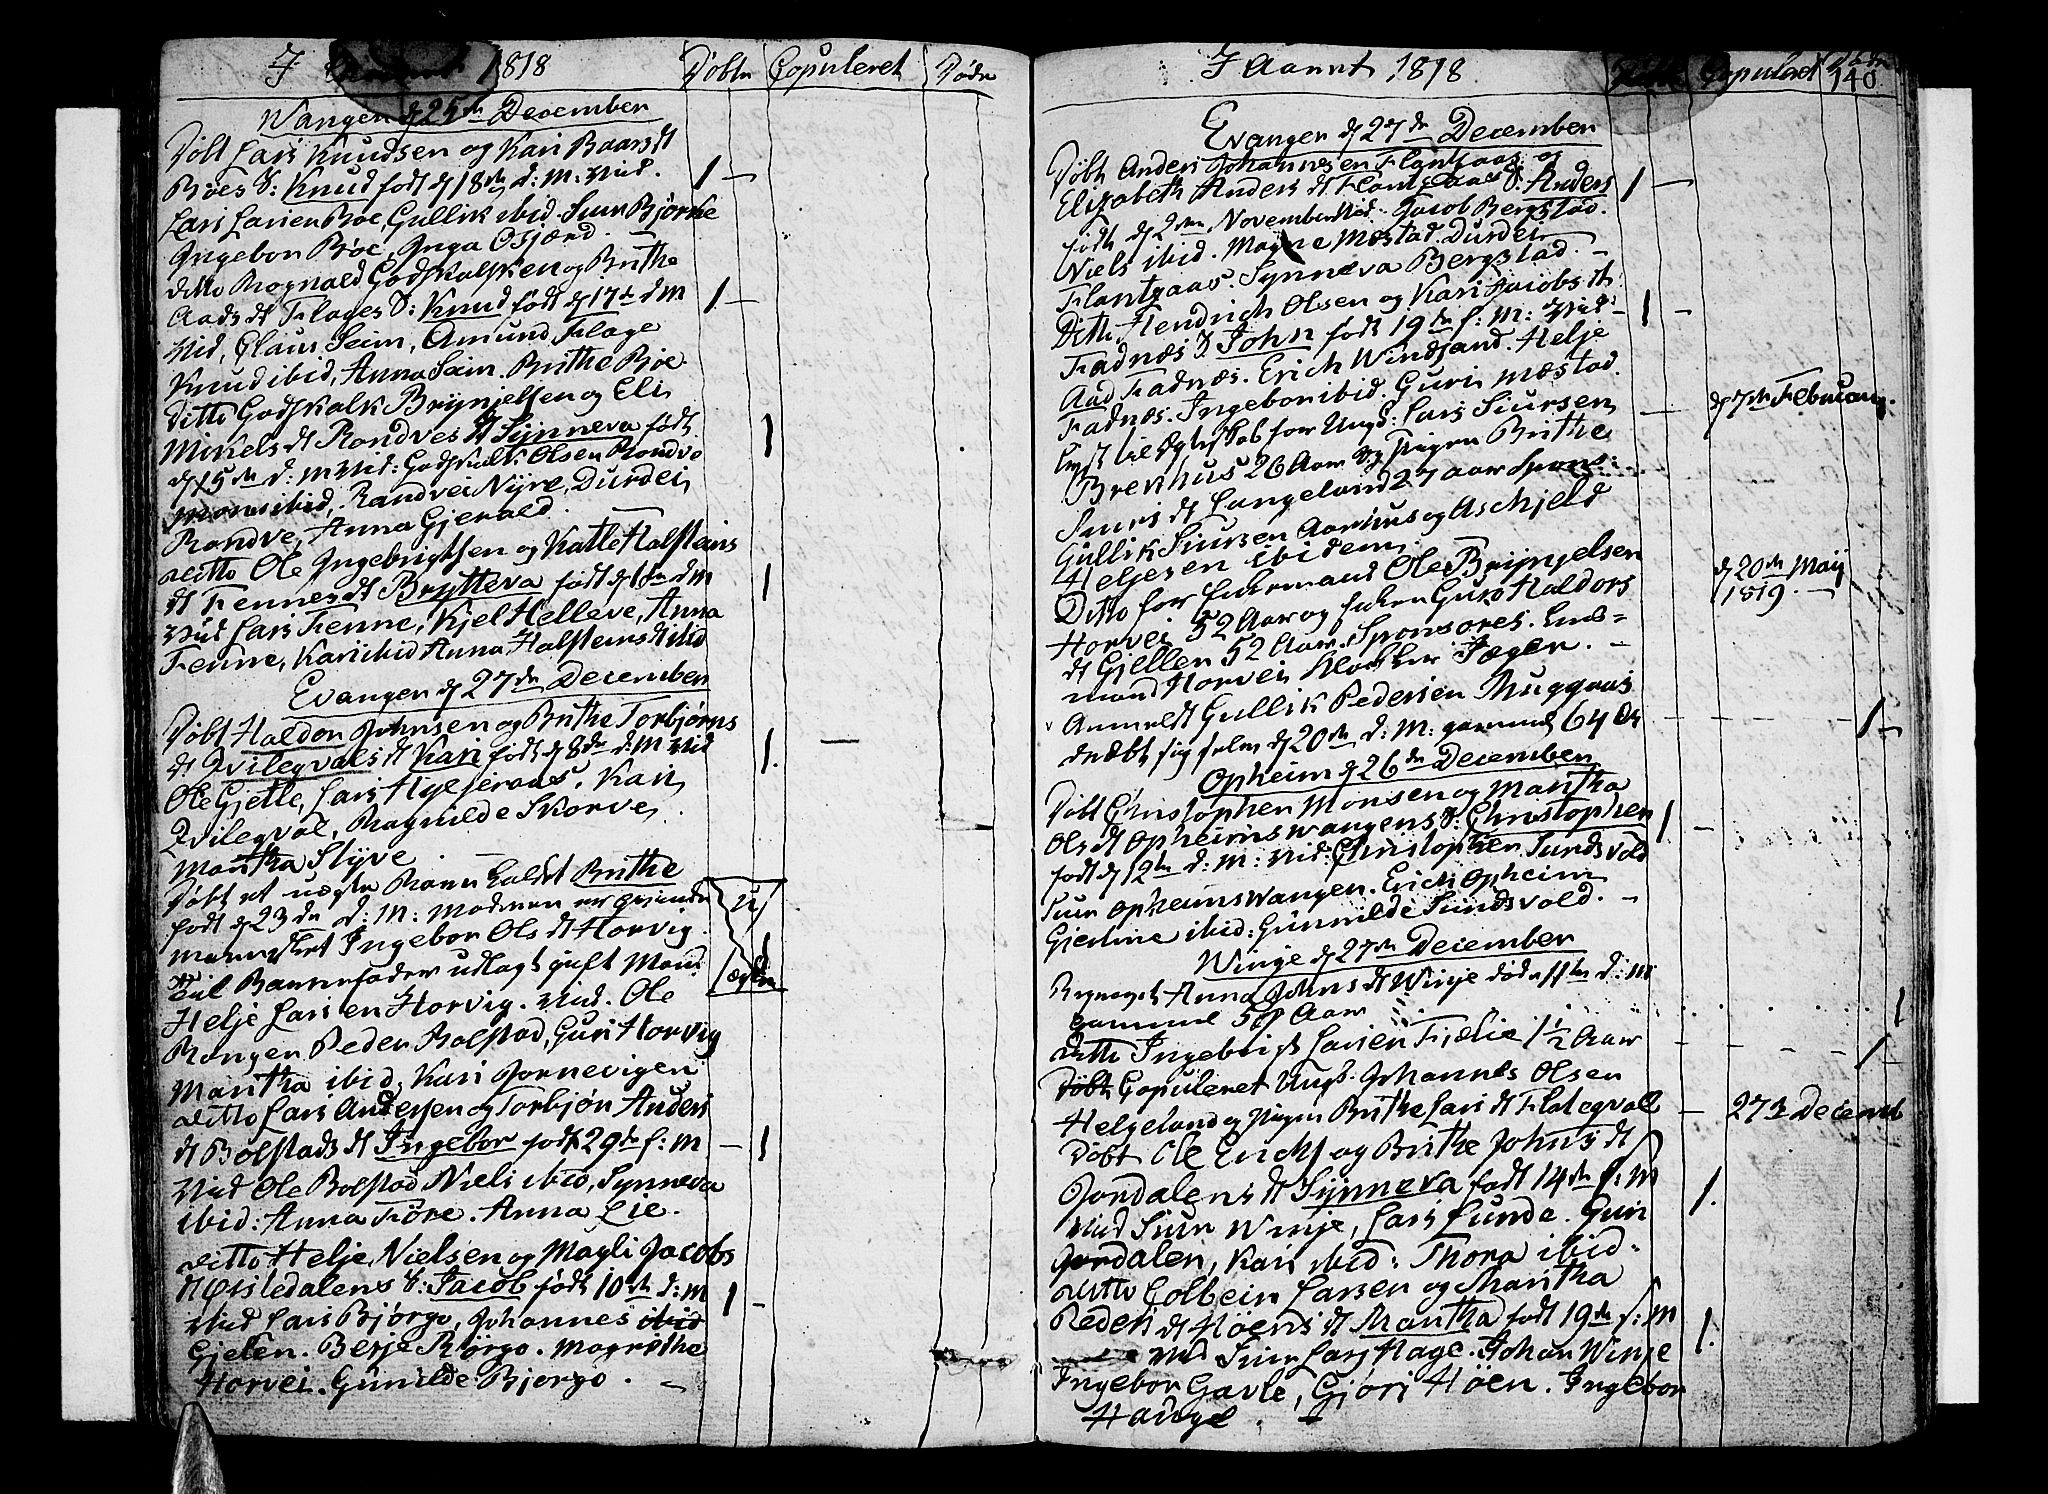 I Aaret 1818 Døbte Copuleret Døde
Wangen d 25de December
Døbt Lars Knudsen og Kari Baars dt
Bøes S: Knud født d 18de d: M: Vid.
Lars Larsen Bøe, Gullik ibid. Siur Bjørke
Ingebor Bøe, Inga
ditto Rognald Godskalksen og Brithe
Aads dt Flages S: Knud født d 17de d M
Vid, Claus Seim, Amund Flage
Knud ibid, Anna Seim. Brithe Bøe
Ditto Godskalk Brynjelsen og Eli
Mikels dt Rondves dt Synneva født
d 15de d: M Vid: Godskalk Olsen Rondve
Mons ibid, Randvei Nyre, Durdei
Rondve, Anna Gjerald.
ditto Ole Ingebrigtsen og Katle Halsteins
dt Fennes dt Brytteva født d 1ste d M
Vid Lars Fenne, Kjel Helleve, Anna
Fenne, Kari ibid Anna Halsteins dt ibid
Evanger d 27de December
Døbt Haldor Johnsen og Brithe Torbjørns
dt Qvileqvals dt Kari født d 8de d: M Vid
Ole Gjelle, Lars, Kari
Qvileqval, Ragnilde Skorve
Martha Styve.
Døbt et uægte Barn kaldet Brithe
født d 23de d: M: Moderen er
Ingebor Ols dt Horvig.
Til Barnefader udlagt gift Mand
Helje Larsen Horvig. Vid. Ole
Peder Bolstad, Guri Horvig
Martha ibid, Kari Jornevigen
ditto Lars Andersen og Torbjør Anders
dt Bolstads dt Ingebor født 29de f: M
Vid Ole Bolstad Niels ibid, Synneva
ibid: Anna Føre. Anna Lie.
ditto Helje Nielsen og Magli Jacobs
dt S: Jacob født 10de d: M
Vid Lars Bjørgo, Johannes ibid
Gjelen. Berje Bjørgo. Magrethe
Horvei. Gunilde Bjørgo.
uægte
I Aaret 1818 Døbte Copuleret Døde
140
Evanger d 27de December
Døbt Anders Johannesen Flantzaas og
Elizabeth Anders dt Flantzaas S. Anders
født d 2den November Vid: Jacob Bergstad.
Niels ibid. Magne Mæstad. Durdei
Flantzaas. Synneva Bergstad.
Ditto Hendrich Olsen og Kari Jacobs dt
Fadnæs S John født 19de f: M: Vid
Aad Fadnæs. Erich Windsand. Helje
Fadnæs. Ingebor ibid. Guri Mæstad.
Lyst til Ægteskab for Ungk: Lars Siursen
Brekhus 26 Aar og Pigen Brithe
Siurs dt Langeland 27 Aar Spons:
Gullik Siursen Aarhus og Aschjeld
Heljesen ibidem.
d 7de Februarij.
Ditto for Enkemand Ole Brynjelsen
Horvei 52 Aar og Enken Guro Haldors
dt Gjellen 52 Aar. Sponsores. Ens=
mand Horvei Klokker Jæger.
d 20de Maij
1819.
Anmeldt Gullik Pedersen Muggaas
dræbt sig selv d 20de d: M: gammel 64 Ar
Opheim d 26de December
Døbt Christopher Monsen og Martha
Ols dt Opheimswangens S. Christopher
født d 12te d: M: Vid: Christopher Sundsvold
Siur Opheimswangen. Erich Opheim
Gjertine ibid: Gunnilde Sundsvold.
Winje d 27de December
Anna Johns dt Winje døde 11te d: M
gammel Aar
ditto Ingebrigt Larsen 1 1/2 Aar
Døbt Copuleret Ungk. Johannes Olsen
Helgeland og Pigen Brithe Lars dt Flateqval
27de Decembr
Døbt Ole Erichs og Brithe Johns dt
Jordalens dt Synneva født 14de f: M
Vid Siur Winje, Lars Lunde. Guri
Jordalen, Kari ibid: Thora ibid.
ditto Colbein Larsen og Martha
Peders dt Høens dt Martha født 19de f: M
Vid Siur Lars Hage. Johan Winje
Ingebor Gavle, Gjøri Høen. Ingebor
Hauge.